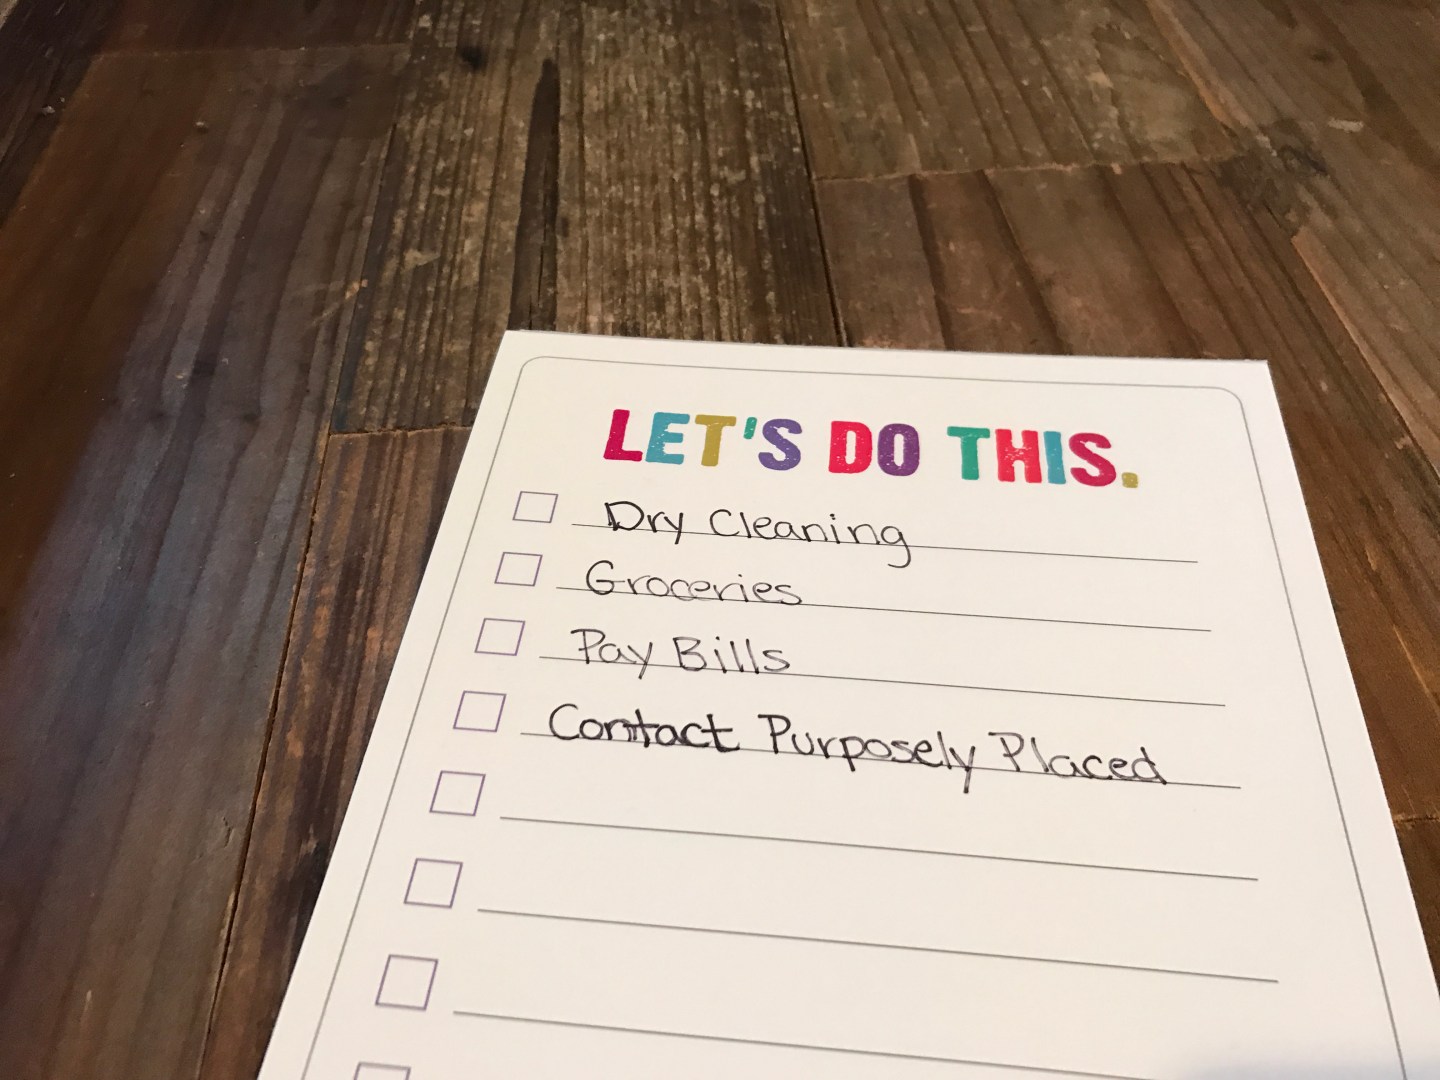 LET'S DO THIS.
Dry Cleaning
Groceries
Pay Bills
Contact Purposely Placed